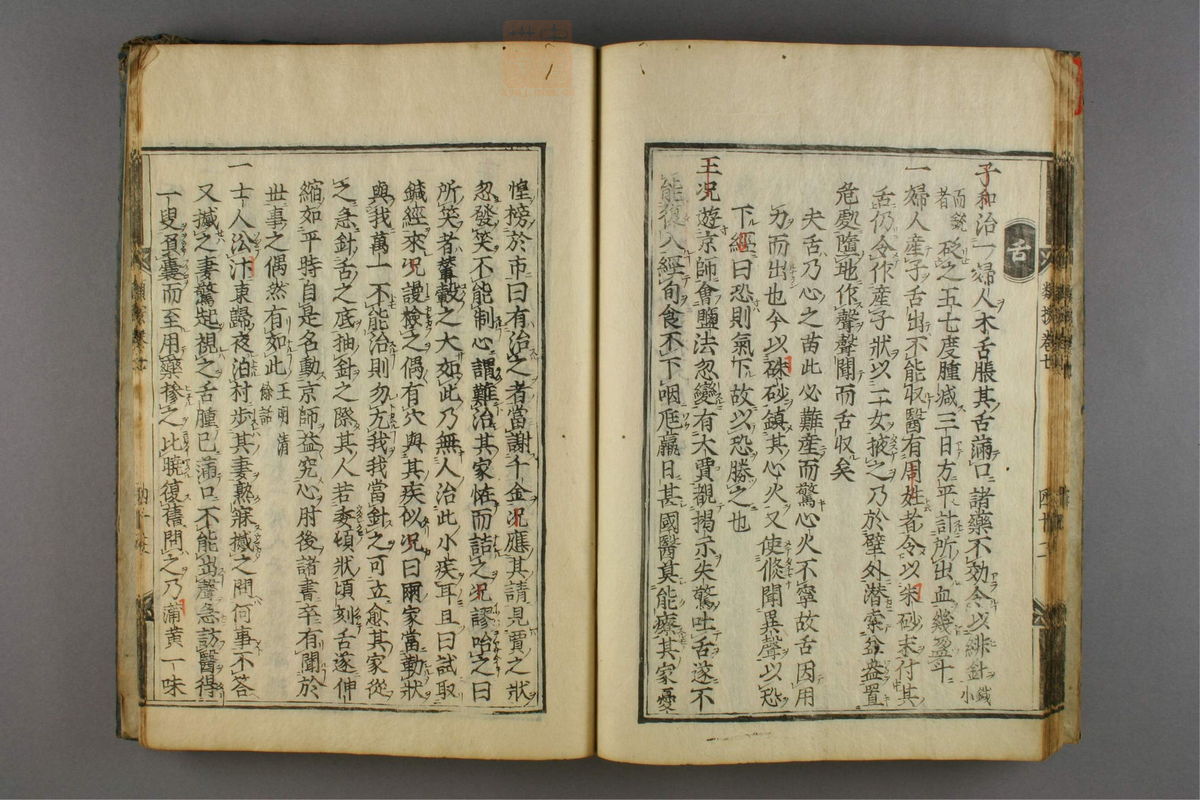 舌
子和治一婦人木舌脹其舌滿口諸藥不効令以緋針小鍼
而銳者砭之五七度腫減三日方平計所出血幾盈斗
一婦人產子舌出不能収醫有周姓者令以朱砂末付其
舌仍令作產子狀以二女掖之乃於壁外潜累盆盎置
危處墮地作聲聲聞而舌収矣
夫舌乃心之苗此必難產而驚心火不寧故舌因用
力而出也今以硃砂鎮其心火又使倐聞異聲以恐
下經曰恐則氣下故以恐勝之也
王况遊京師會鹽法忽變有大賈覩揭示失驚吐舌遂不
能復入經旬食不下咽尫羸日甚國醫莫能療其家憂
惶榜於市曰有治之者當謝千金况應其請見賈之狀
忽發笑不能制心謂難治其家怪而詰之况謬咍之曰
所笑者輦轂之大如此乃無人治此小疾耳且曰試取
鍼經來况謾檢之偶有穴與其疾似况曰爾家當勤狀
與我萬一不能治則勿尤我我當針之可立愈其家從
之急針舌之底抽針之際其人若委頓狀頃刻舌遂伸
縮如平時自是名動京師益究心肘後諸書卒有聞於
世事之偶然有如此王明清餘話
一士人沿汴東歸夜泊村步其妻熟寐撼之問何事不答
又撼之妻驚起視之舌腫已滿口不能出聲急訪醫得
一叟負囊而至用藥摻之比曉復舊問之乃蒲黃一味